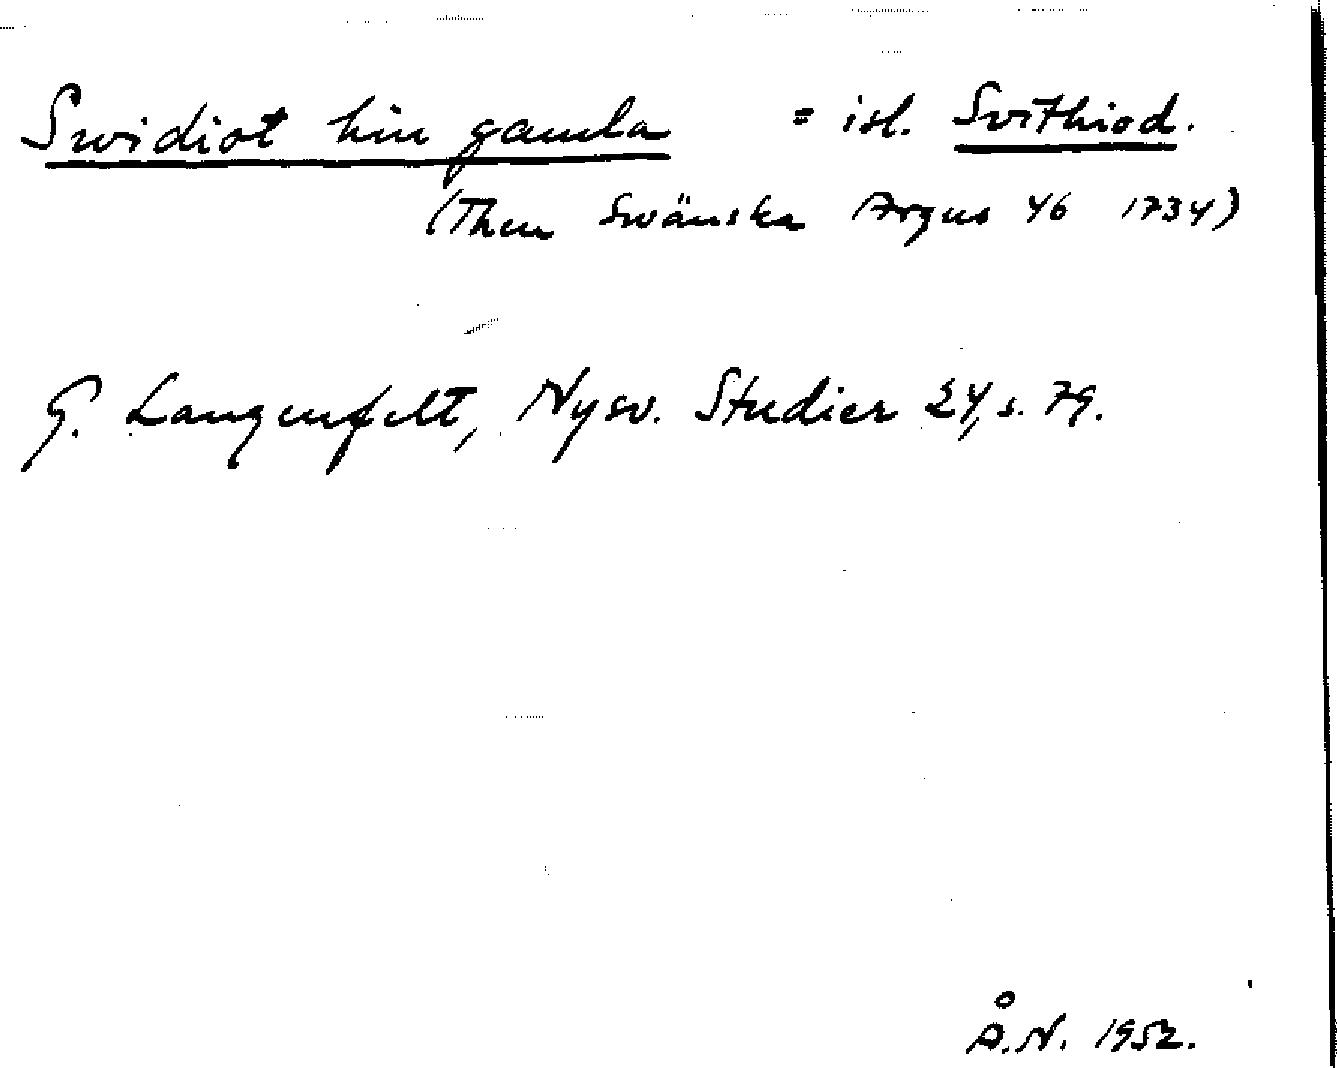 Swidiot hin gamla = isl. Svithiod.
(Then Swänska Argus 46 1734)
G. Langenfelt, Nysv. Studier 24, s. 79.
Å.N. 1952.